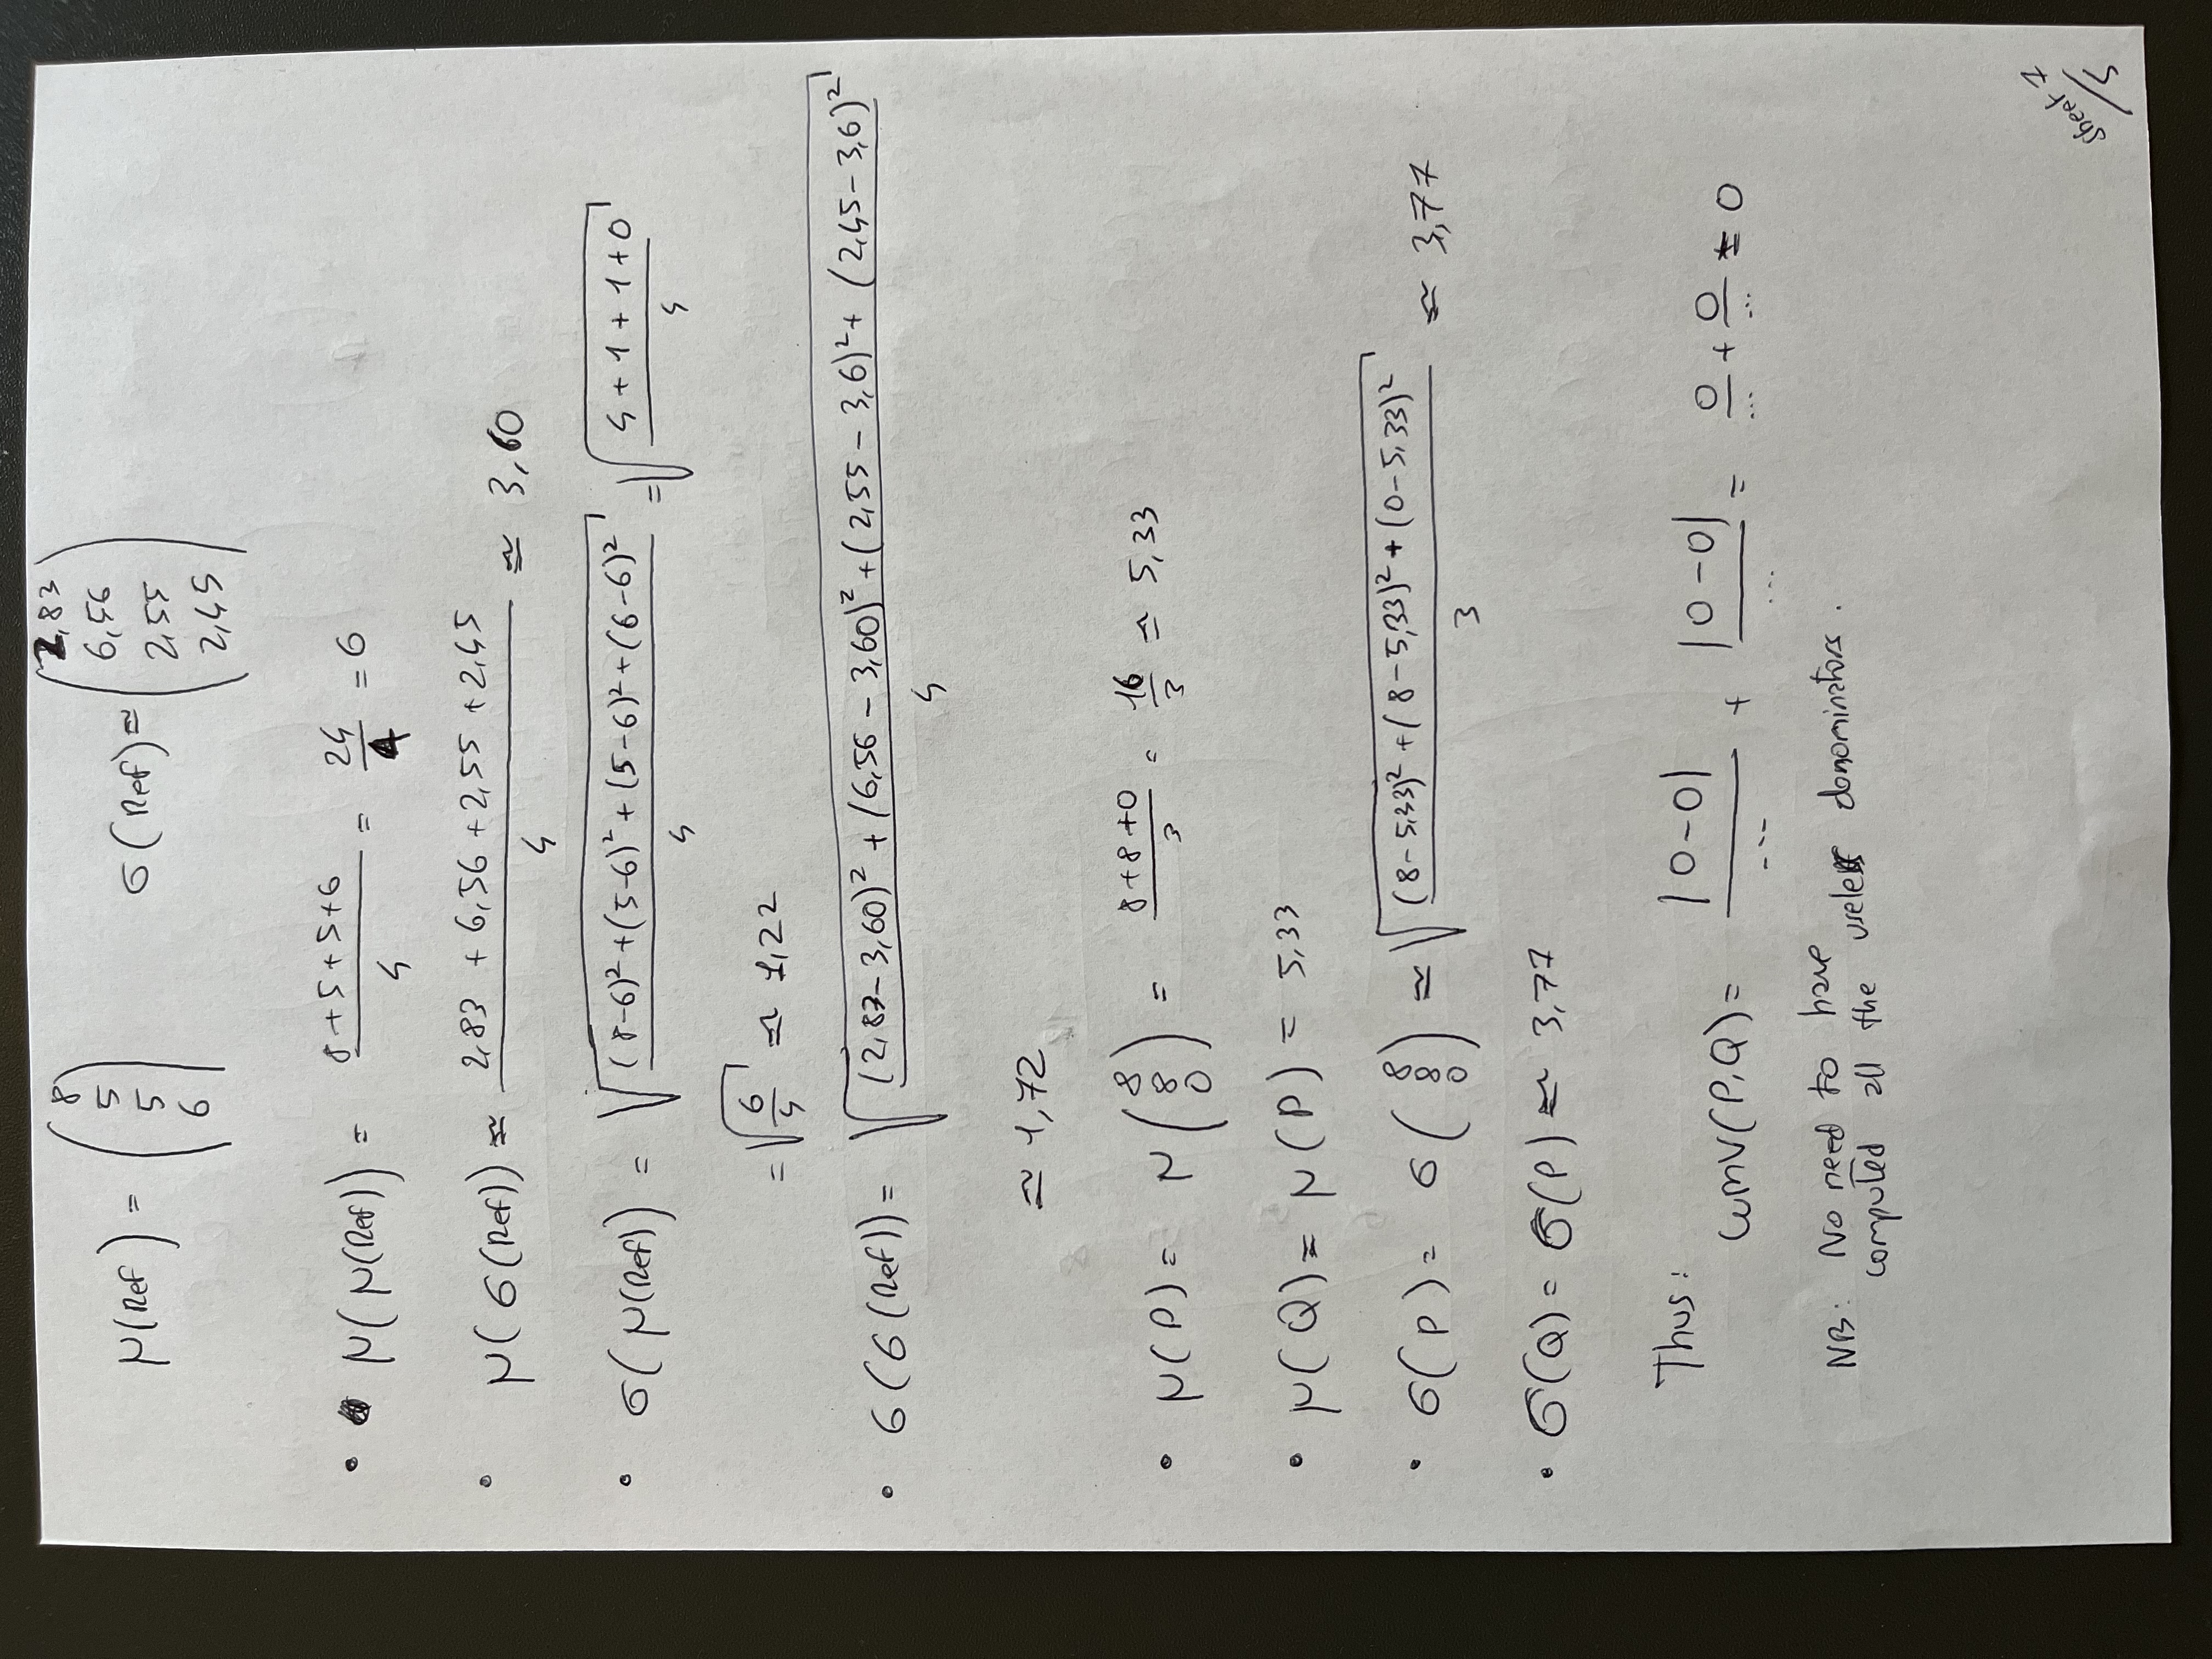 μ(Ref) = (8 5 5 6) σ(Ref) ≃ (2,83 6,56 2,55 2,45)
• μ(μ(Ref)) = (8+5+5+6)/4 = 24/4 = 6
• μ(σ(Ref)) ≃ (2,83 + 6,56 + 2,55 + 2,45)/4 ≃ 3,60
• σ(μ(Ref)) = √(((8-6)² + (5-6)² + (5-6)² + (6-6)²)/4) = √((4+1+1+0)/4)
= √(6/4) ≃ 1,22
• σ(σ(Ref)) = √(((2,83-3,60)² + (6,56-3,60)² + (2,55-3,6)² + (2,45-3,6)²)/4)
≃ 1,72
• μ(P) = μ(8 8 0) = (8+8+0)/3 = 16/3 ≃ 5,33
• μ(Q) = μ(P) = 5,33
• σ(P) = σ(8 8 0) ≃ √(((8-5,33)² + (8-5,33)² + (0-5,33)²)/3) ≃ 3,77
• σ(Q) = σ(P) ≃ 3,77
Thus:
wmv(P,Q) = |0-0|/... + |0-0|/... = 0/... + 0/... = 0
NB: No need to have
computed all the useless donominators.
sheet 7
/5